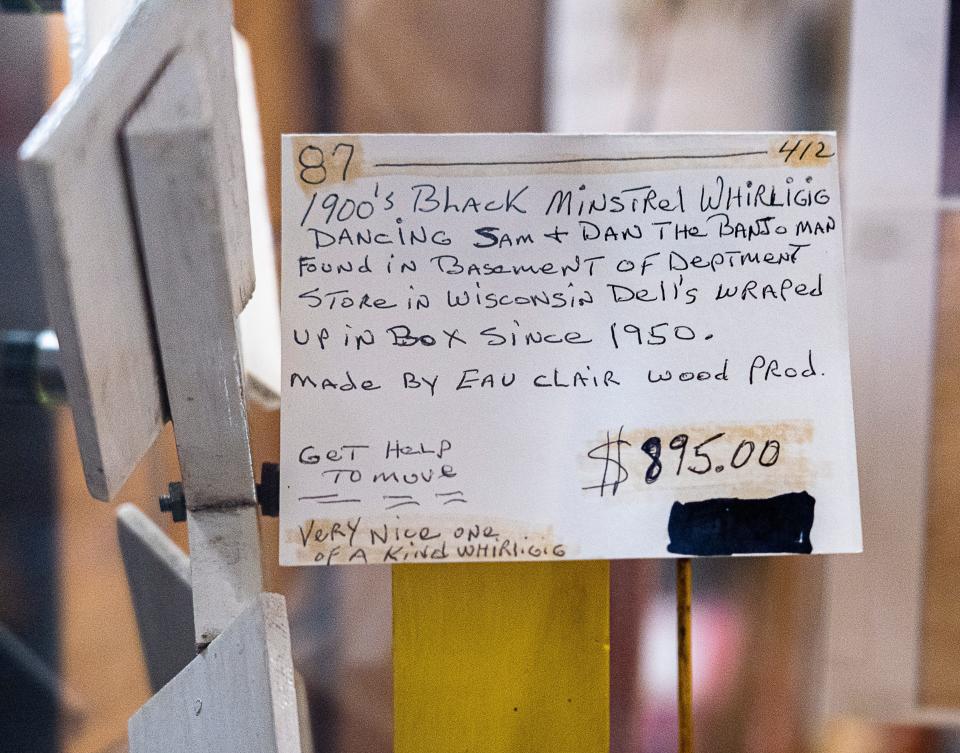 87 412
1900's BLACK MINSTREL WHIRLIGIG
DANCING SAM + DAN THE BANJO MAN
FOUND IN BASEMENT OF DEPTMENT
STORE IN WISCONSIN DELL'S WRAPED
UP IN BOX SINCE 1950.
MADE BY EAU CLAIR WOOD PROD.
GET HELP
TO MOVE
$895.00
VERY NICE ONE
OF A KIND WHIRLIGIG